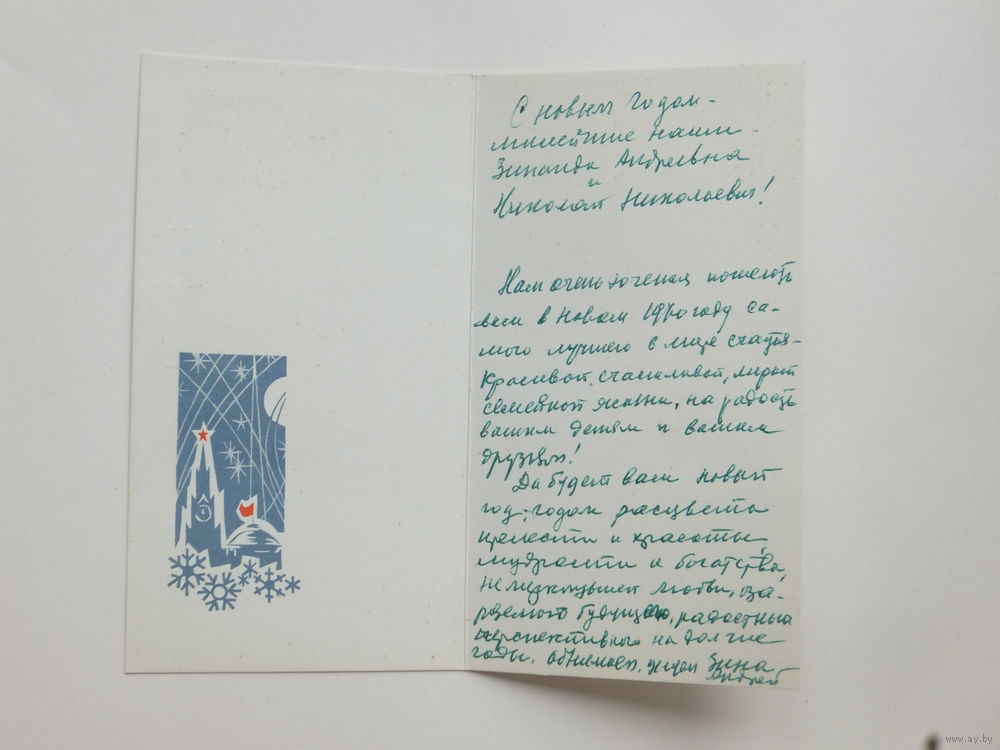 С новым Годом -
милейшие наши
Зинаида Андреевна
и
Николай Николаевич!
Нам очень хочется пожелать
вам в Новом 1970 году са-
мого лучшего в мире счастья -
красивой, счастливой, мирной
семейной жизни, на радость
вашим детям и вашим
друзьям!
Да будет вам новый
год, годом расцвета
прелести и красоты,
мудрости и богатства,
немеркнувшей любви,
будущего, радостных
перспективного на долгие
годы. Обнимаем, ждем Зина
Андрей
www.ay.by